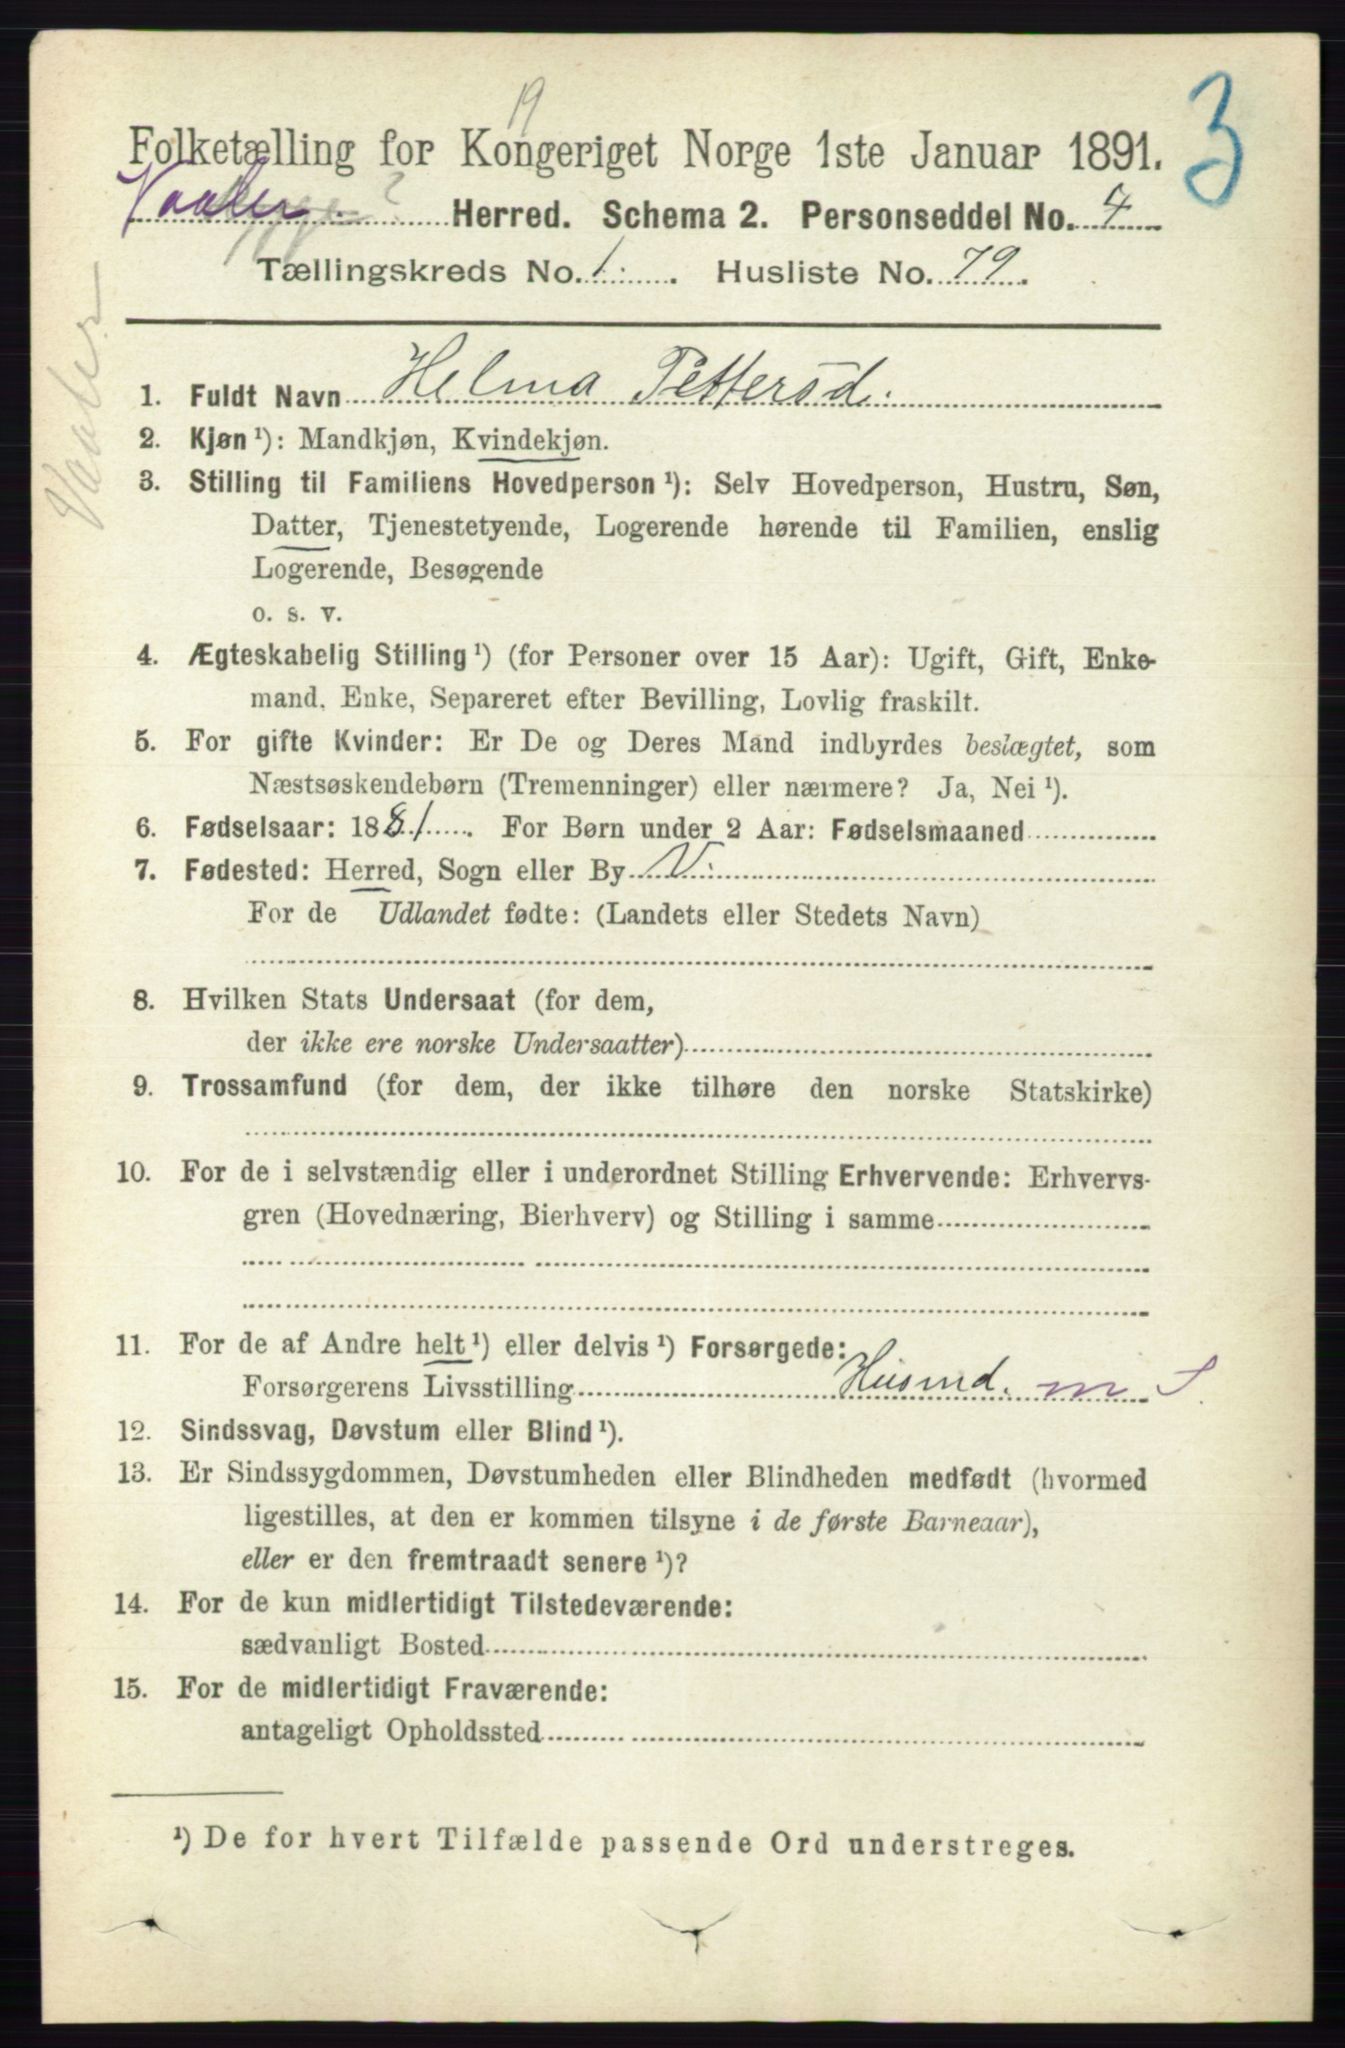 19
3
Folketælling for Kongeriget Norge 1ste Januar 1891.
Vaaler ? Herred. Schema 2. Personseddel No. 4
Tællingskreds No. 1. Husliste No. 79.
Vaaler
1. Fuldt Navn Helma Pettersød.
2. Kjøn ¹): Mandkjøn, Kvindekjøn.
3. Stilling til Familiens Hovedperson ¹): Selv Hovedperson, Hustru, Søn,
Datter, Tjenestetyende, Logerende hørende til Familien, enslig
Logerende, Besøgende
o. s. v.
4. Ægteskabelig Stilling ¹) (for Personer over 15 Aar): Ugift, Gift, Enke-
mand, Enke, Separeret efter Bevilling, Lovlig fraskilt.
5. For gifte Kvinder: Er De og Deres Mand indbyrdes beslægtet, som
Næstsøskendebørn (Tremenninger) eller nærmere? Ja, Nei ¹).
6. Fødselsaar: 1881. For Børn under 2 Aar: Fødselsmaaned
7. Fødested: Herred, Sogn eller By V.
For de Udlandet fødte: (Landets eller Stedets Navn)
8. Hvilken Stats Undersaat (for dem,
der ikke ere norske Undersaatter)
9. Trossamfund (for dem, der ikke tilhøre den norske Statskirke)
10. For de i selvstændig eller i underordnet Stilling Erhvervende: Erhvervs-
gren (Hovednæring, Bierhverv) og Stilling i samme
11. For de af Andre helt ¹) eller delvis ¹) Forsørgede:
Forsørgerens Livsstilling Husmd. m S.
12. Sindssvag, Døvstum eller Blind ¹).
13. Er Sindssygdommen, Døvstumheden eller Blindheden medfødt (hvormed
ligestilles, at den er kommen tilsyne i de første Barneaar),
eller er den fremtraadt senere ¹)?
14. For de kun midlertidigt Tilstedeværende:
sædvanligt Bosted
15. For de midlertidigt Fraværende:
antageligt Opholdssted
¹) De for hvert Tilfælde passende Ord understreges.